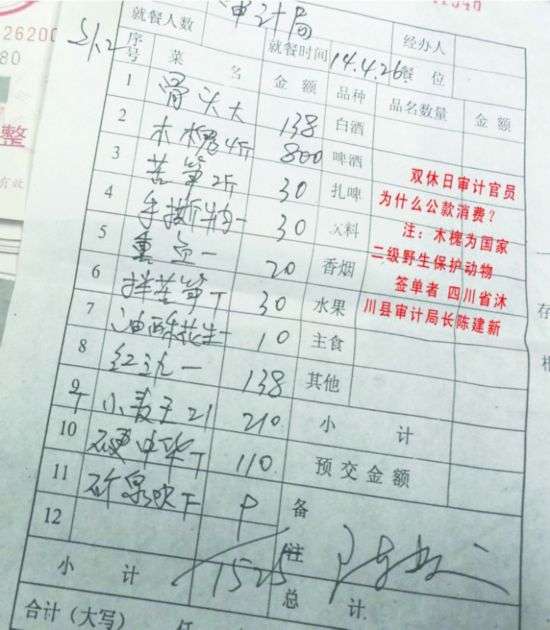 26200
80
整
有效
就餐人数 审计局 经办人
5/.2
就餐时间 14.4.26. 餐位
序号 菜名 金额 品种 品名数量 金额
1 骨头大 138 白酒
2 木槐4斤 800 啤酒
3 苦笋2斤 30 扎啤
4 手撕 30 饮料
5 20 香烟
6 拌苦笋 30 水果
7 油酥花生一 10 主食
8 红 一 138 其他
9 小 21 210 小计
10 硬中华 110 预交金额
11 矿泉水 备注
12
小计 1525 总计
合计（大写） 仟
双休日审计官员
为什么公款消费？
注：木槐为国家
二级野生保护动物
签单者 四川省沐
川县审计局长陈建新